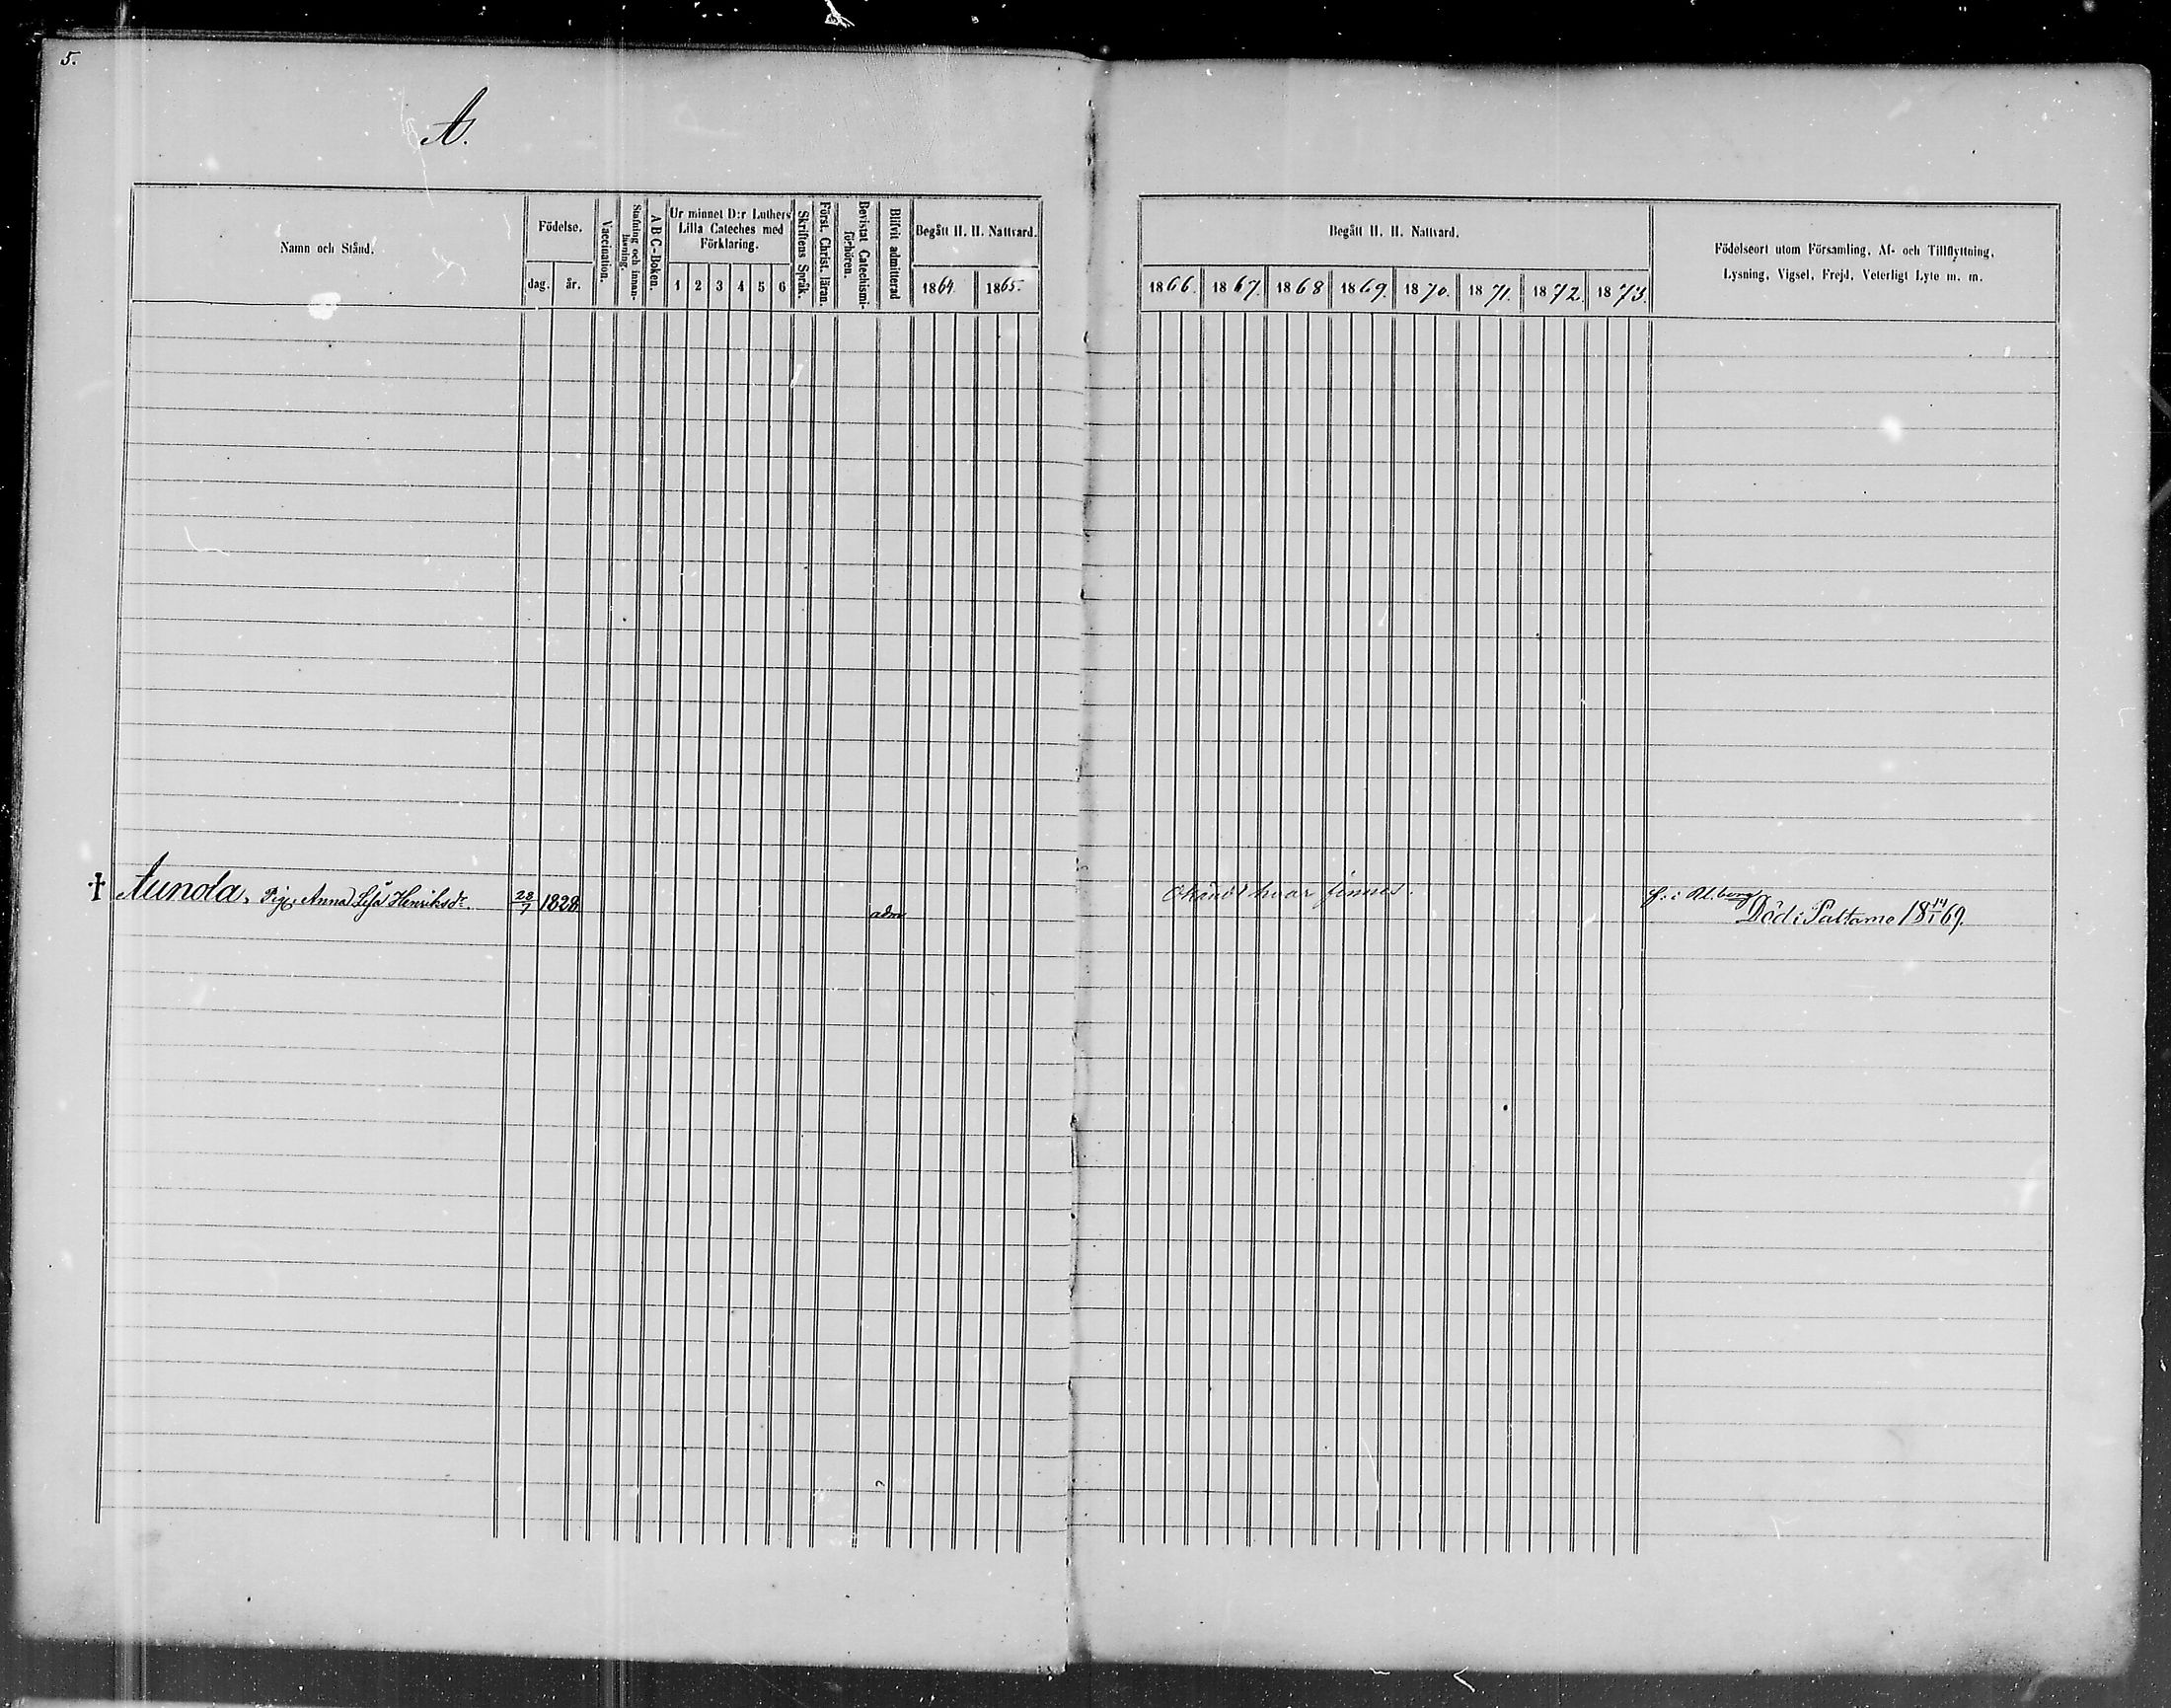 5.
A.
Namn och Stånd.
Födelse.
dag. år.
Vaccination.
Stafning och innan-
läsning.
A B C-Boken.
Ur minnet D:r Luthers
Lilla Cateches med
Förklaring.
1 2 3 4 5 6
Skriftens Språk.
Först. Christ. läran.
Bevistat Catechismi-
förhören.
Blifvit admitterad
Begått H. H. Nattvard.
1864. 1865.
Begått H. H. Nattvard.
1866. 1867. 1868 1869. 1870. 1871. 1872. 1873.
Födelseort utom Församling, Af- och Tillflyttning,
Lysning, Vigsel, Frejd, Veterligt Lyte m. m.
† Aunola, Pig. Anna Lisa Henriksdr. 28/7 1828 adm Okändt hvar finnes. f. i Ul.borg
Död i Paltamo 18 14/1 69.